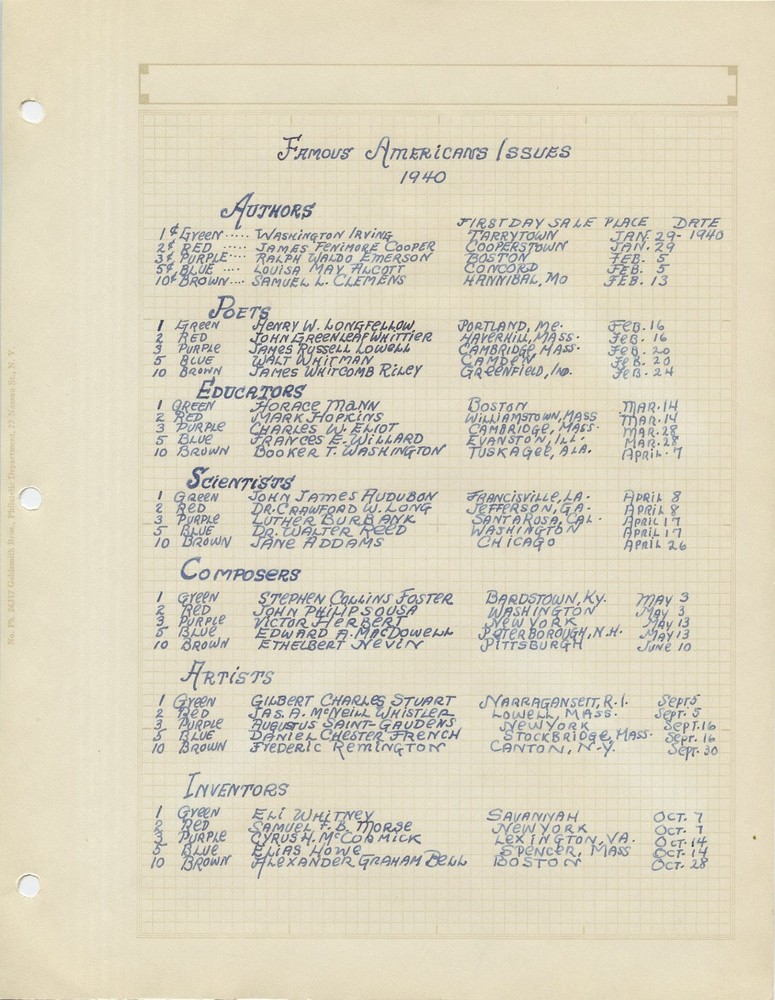 FAMOUS AMERICANS ISSUES
1940
AUTHORS
FIRST DAY SALE PLACE DATE
1¢ GREEN ..... WASHINGTON IRVING TARRYTOWN JAN. 29- 1940
2¢ RED ..... JAMES FENIMORE COOPER COOPERSTOWN JAN. 29
3¢ PURPLE .... RALPH WALDO EMERSON BOSTON FEB. 5
5¢ BLUE .... LOUISA MAY ALCOTT CONCORD FEB. 5
10¢ BROWN .... SAMUEL L. CLEMENS HANNIBAL, MO FEB. 13
POETS
1 GREEN HENRY W. LONGFELLOW PORTLAND, ME. FEB. 16
2 RED JOHN GREENLEAF WHITTIER HAVERHILL, MASS. FEB. 16
3 PURPLE JAMES RUSSELL LOWELL CAMBRIDGE, MASS. FEB. 20
5 BLUE WALT WHITMAN CAMDEN FEB. 20
10 BROWN JAMES WHITCOMB RILEY GREENFIELD, IND. FEB. 24
EDUCATORS
1 GREEN HORACE MANN BOSTON MAR. 14
2 RED MARK HOPKINS WILLIAMSTOWN, MASS MAR. 14
3 PURPLE CHARLES W. ELIOT CAMBRIDGE, MASS. MAR. 28
5 BLUE FRANCES E. WILLARD EVANSTON, ILL. MAR. 28
10 BROWN BOOKER T. WASHINGTON TUSKAGEE, ALA. APRIL. 7
SCIENTISTS
1 GREEN JOHN JAMES AUDUBON FRANCISVILLE, LA. APRIL 8
2 RED DR. CRAWFORD W. LONG JEFFERSON, GA. APRIL 8
3 PURPLE LUTHER BURBANK SANTA ROSA, CAL. APRIL 17
5 BLUE DR. WALTER REED WASHINGTON APRIL 17
10 BROWN JANE ADDAMS CHICAGO APRIL 26
COMPOSERS
1 GREEN STEPHEN COLLINS FOSTER BARDSTOWN, KY. MAY 3
2 RED JOHN PHILIP SOUSA WASHINGTON MAY 3
3 PURPLE VICTOR HERBERT NEW YORK MAY 13
5 BLUE EDWARD A. MACDOWELL PETERBOROUGH, N.H. MAY 13
10 BROWN ETHELBERT NEVIN PITTSBURGH JUNE 10
ARTISTS
1 GREEN GILBERT CHARLES STUART NARRAGANSETT, R.I. SEPT 5
2 RED JAS. A. MCNEILL WHISTLER LOWELL, MASS. SEPT. 5
3 PURPLE AUGUSTUS SAINT-GAUDENS NEW YORK SEPT. 16
5 BLUE DANIEL CHESTER FRENCH STOCKBRIDGE, MASS. SEPT. 16
10 BROWN FREDERIC REMINGTON CANTON, N.Y. SEPT. 30
INVENTORS
1 GREEN ELI WHITNEY SAVANNAH OCT. 7
2 RED SAMUEL F. B. MORSE NEW YORK OCT. 7
3 PURPLE CYRUS H. MCCORMICK LEXINGTON, VA. OCT. 14
5 BLUE ELIAS HOWE SPENCER, MASS OCT. 14
10 BROWN ALEXANDER GRAHAM BELL BOSTON OCT. 28
No. Ph. 26317 Goldsmith Bros., Philatelic Department, 77 Nassau St., N. Y.